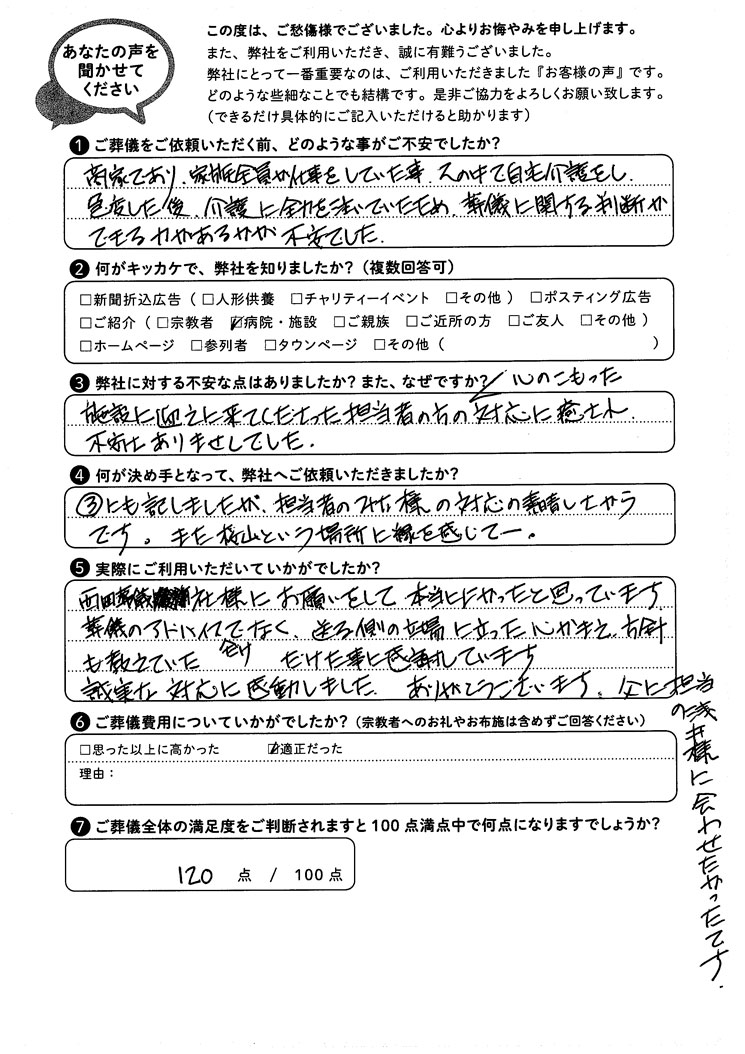 あなたの声を
聞かせて
ください
この度は、ご愁傷様でございました。心よりお悔やみを申し上げます。
また、弊社をご利用いただき、誠に有難うございました。
弊社にとって一番重要なのは、ご利用いただきました『お客様の声』です。
どのような些細なことでも結構です。是非ご協力をよろしくお願い致します。
(できるだけ具体的にご記入いただけると助かります)
❶ ご葬儀をご依頼いただく前、どのような事がご不安でしたか?
商家であり、家族全員が仕事をしていた事、父の中で自宅介護をし、
退院した後、介護に全力を注いでいたため、葬儀に関する判断が
できる力があるかが不安でした。
❷ 何がキッカケで、弊社を知りましたか?(複数回答可)
□新聞折込広告(□人形供養 □チャリティーイベント □その他) □ポスティング広告
□ご紹介(□宗教者 ☑病院・施設 □ご親族 □ご近所の方 □ご友人 □その他)
□ホームページ □参列者 □タウンページ □その他( )
❸ 弊社に対する不安な点はありましたか?また、なぜですか?
心のこもった
施設に迎えに来てくださった担当者の方の対応に癒され、
不安はありませんでした。
❹ 何が決め手となって、弊社へご依頼いただきましたか?
③にも記しましたが、担当者のみな様の対応の素晴しさから
です。また桜山という場所に縁を感じて―。
❺ 実際にご利用いただいていかがでしたか?
西田葬儀社様にお願いをして本当によかったと思っています。
葬儀のアドバイスでなく、送る側の立場に立った心がまえ、方針
も教えていただけた事に感謝しています
誠実な対応に感動しました。ありがとうございます。父に担当
の浅井様に会わせたかったです。
❻ ご葬儀費用についていかがでしたか?(宗教者へのお礼やお布施は含めずご回答ください)
□思った以上に高かった ☑適正だった
理由:
❼ ご葬儀全体の満足度をご判断されますと100点満点中で何点になりますでしょうか?
120 点 / 100点